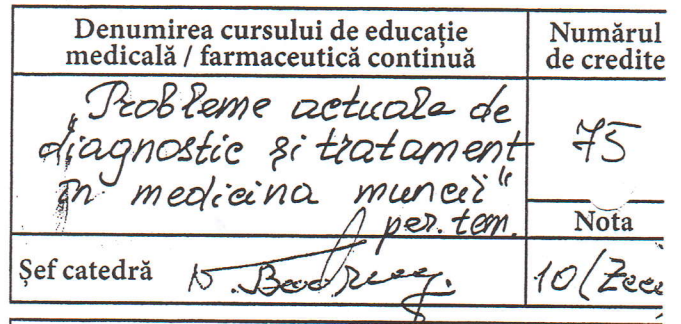 Denumirea cursului de educație
medicală / farmaceutică continuă
Numărul
de credite
„Probleme actuale de
diagnostic și tratament
în medicina muncii"
per. tem.
75
Nota
Șef catedră
10 (Zece